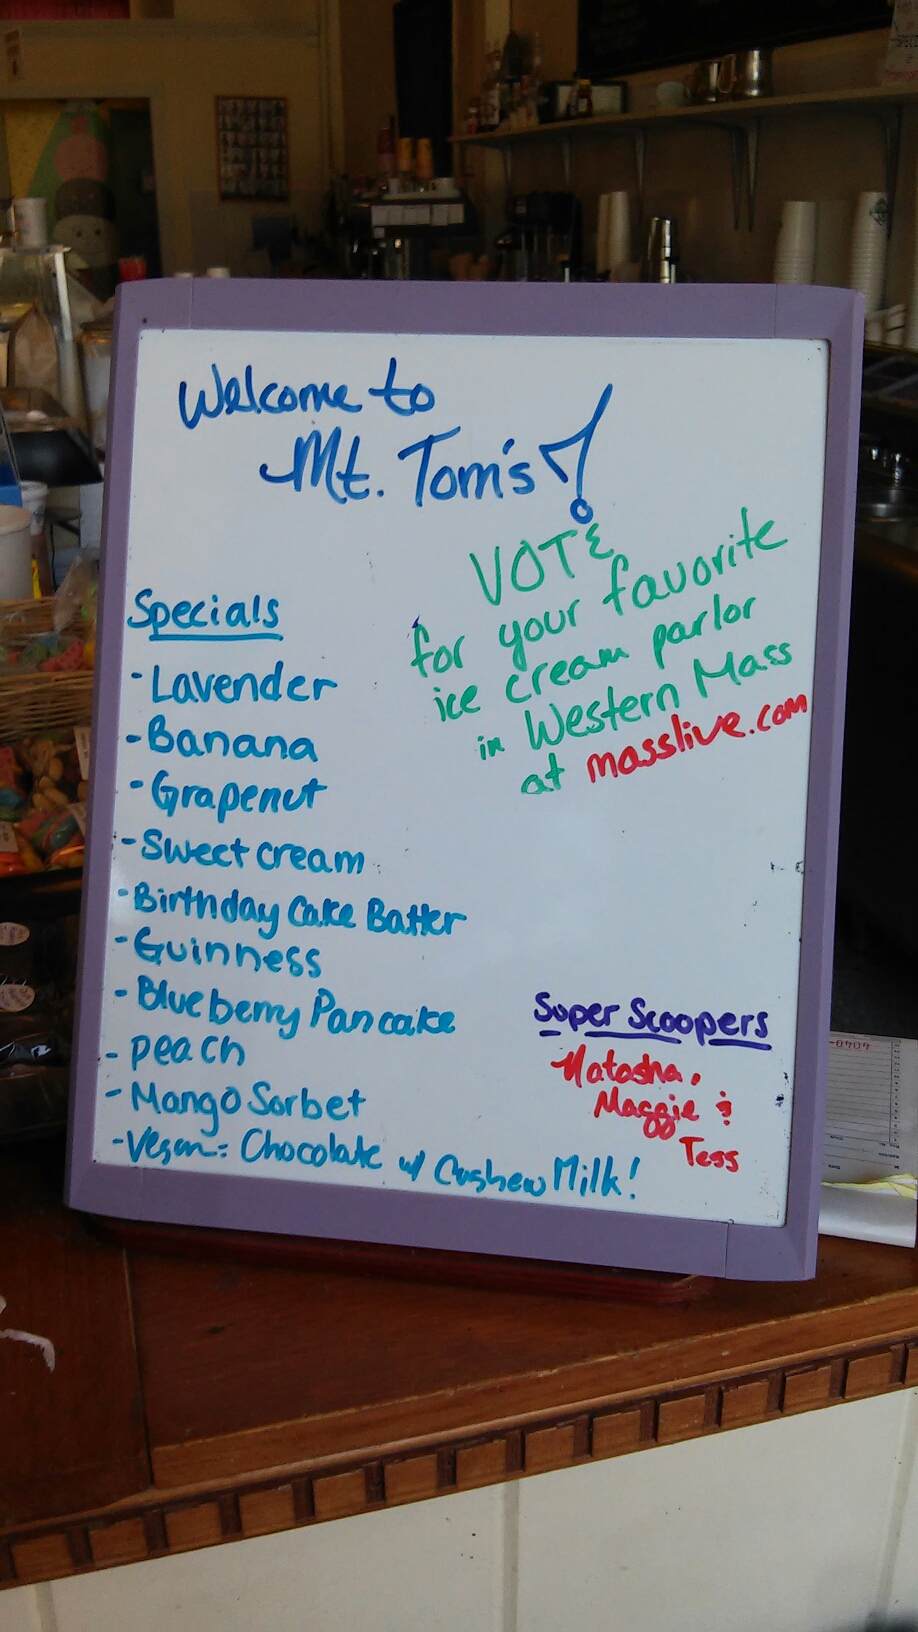 Welcome to
Mt. Tom's!
VOTE
for your favorite
ice cream parlor
in Western Mass
at masslive.com
Specials
- Lavender
- Banana
- Grapenut
- Sweet cream
- Birthday Cake Batter
- Guinness
- Blueberry Pancake
- Peach
- Mango Sorbet
- Vegan = Chocolate w/ Cashew Milk!
Super Scoopers
Natasha,
Maggie &
Tess